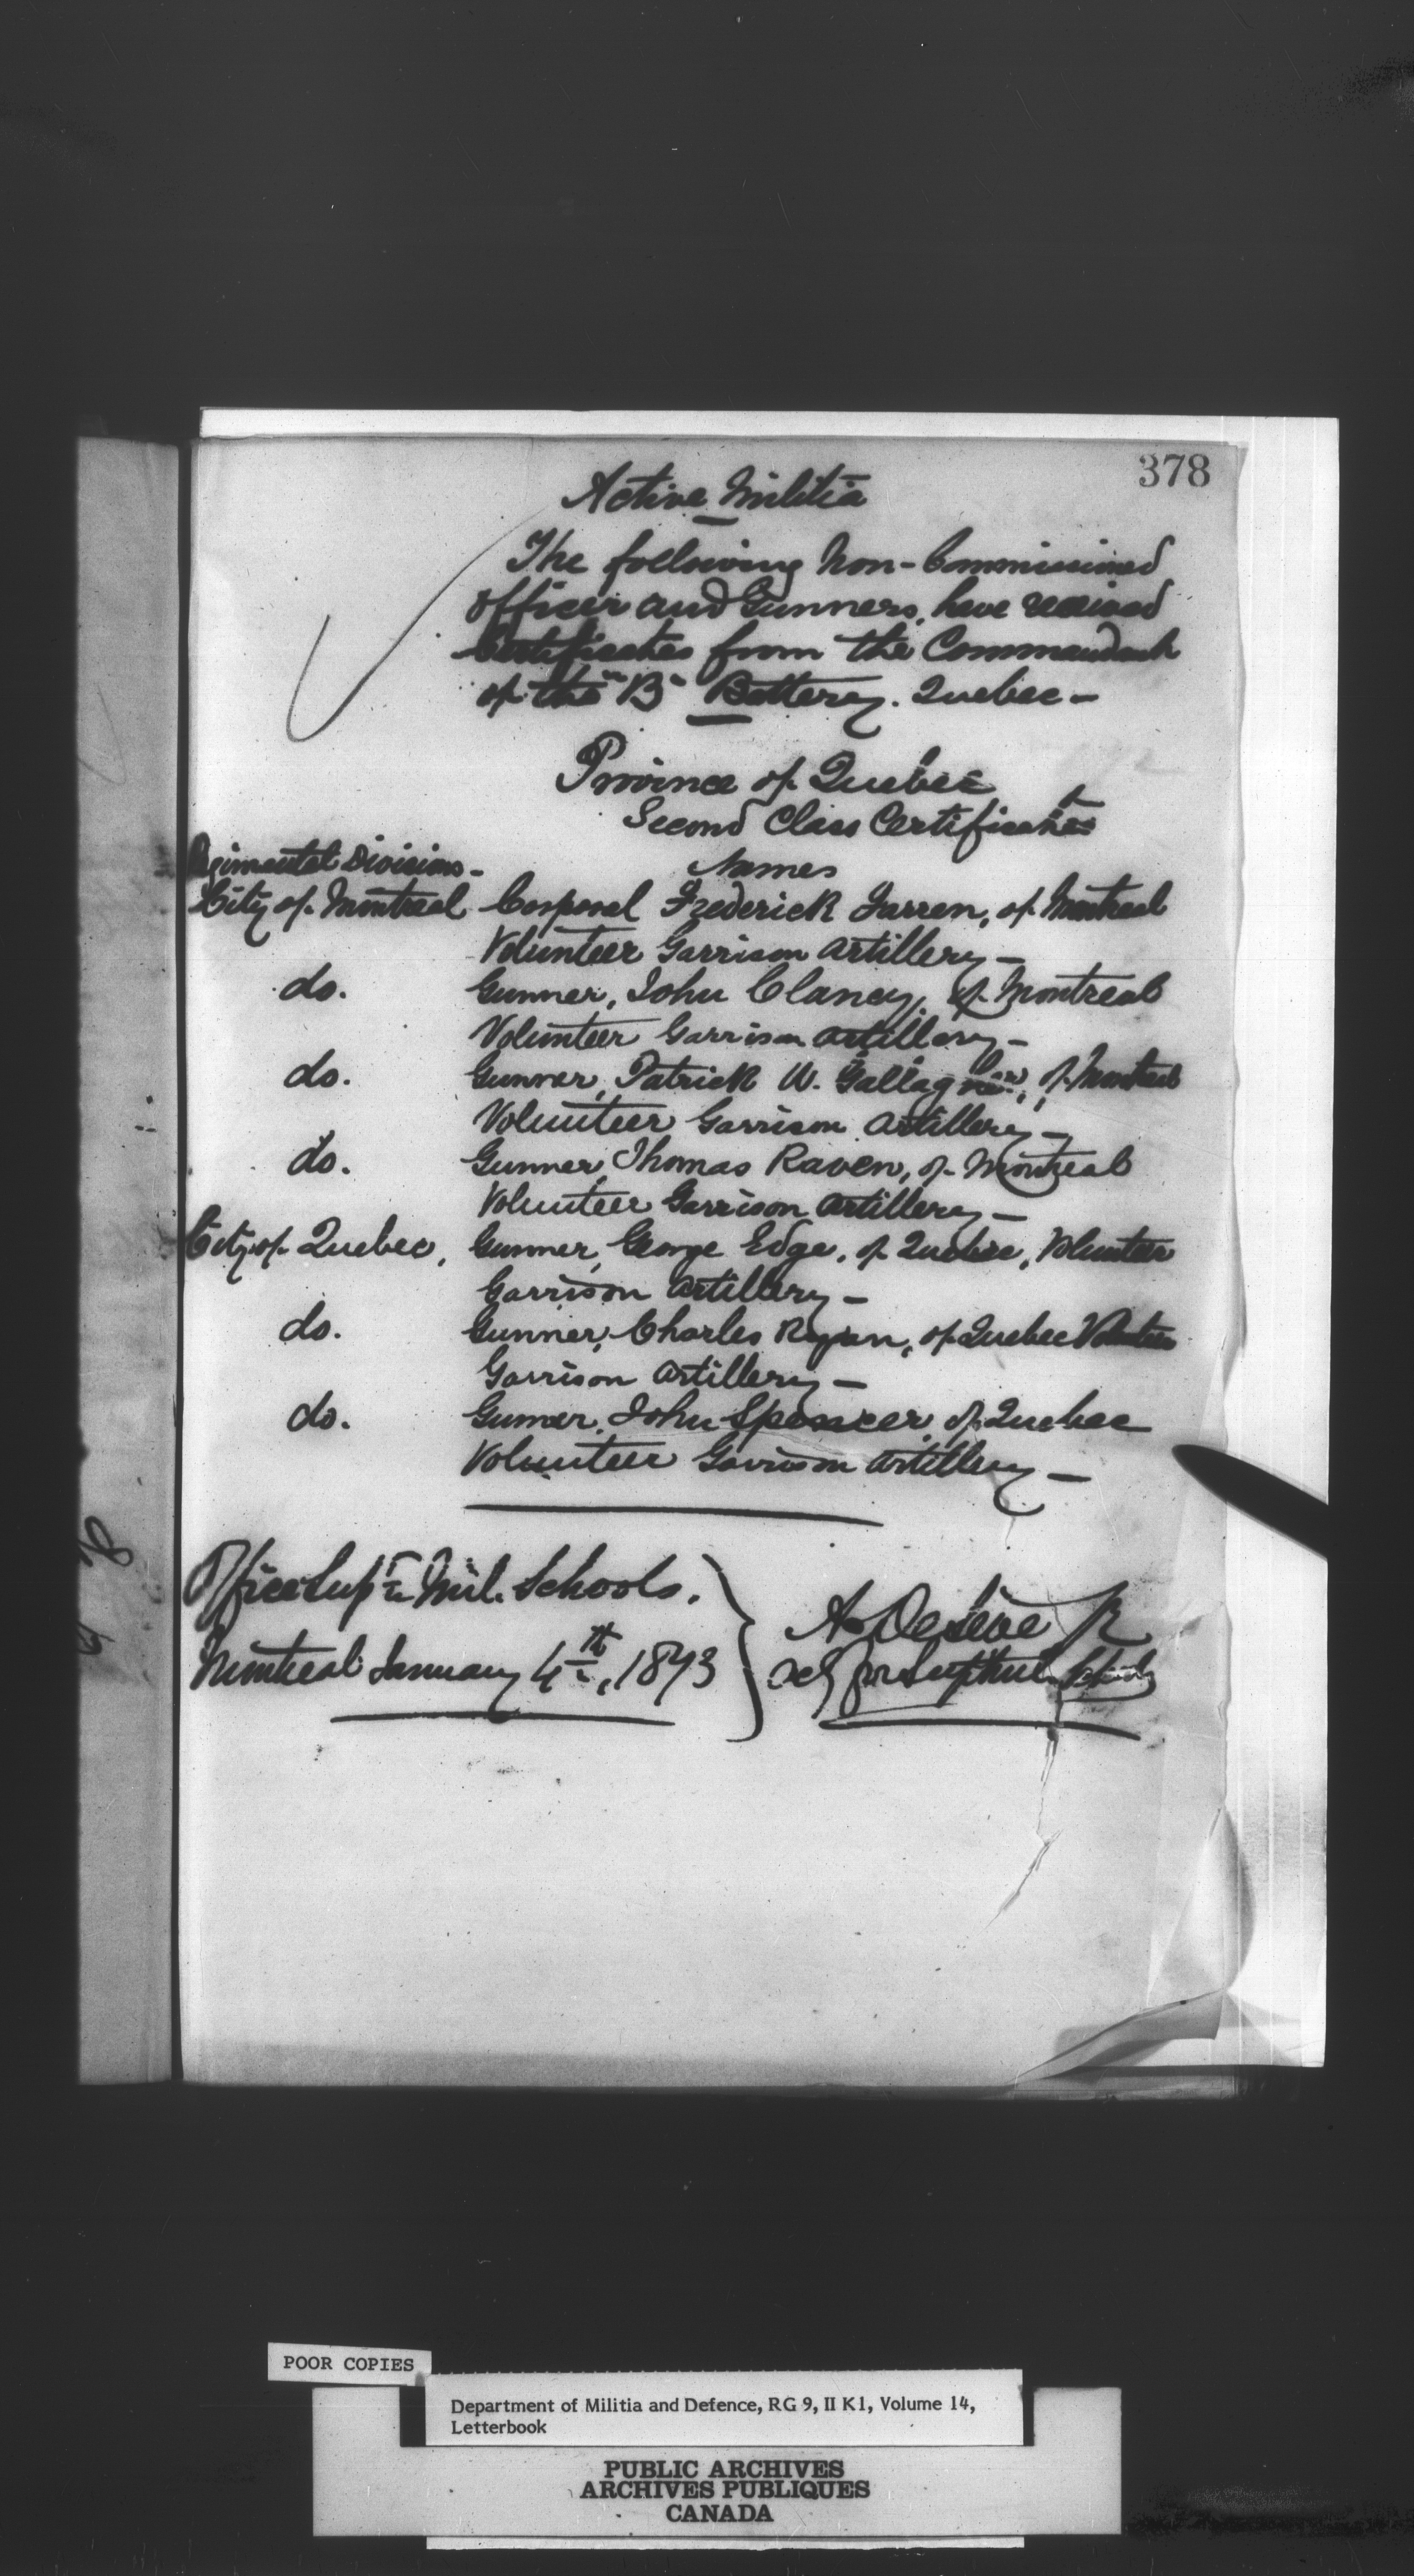 378
Active Militia
The following Non-Commissioned
officer and Gunners, have received
Certificates from the Commandant
of the "B" Battery. Quebec-
Province of Quebec
Second Class Certificates
Regimental Divisions- Names
City of Montreal Corporal Frederick Farren, of Montreal
Volunteer Garrison Artillery-
do. Gunner, John Clancy, of Montreal
Volunteer Garrison Artillery-
do. Gunner, Patrick W. Gallagher, of Montreal
Volunteer Garrison Artillery-
do. Gunner, Thomas Raven, of Montreal
Volunteer Garrison Artillery-
City of Quebec, Gunner, George Edge, of Quebec, Volunteer
Garrison Artillery-
do. Gunner, Charles Ryan, of Quebec Volunteer
Garrison Artillery-
do. Gunner, John Spencer, of Quebec
Volunteer Garrison Artillery-
Office Supt Mil. Schools.
Montreal January 4th, 1873
for Supt Mil Schools
POOR COPIES
Department of Militia and Defence, RG 9, II K1, Volume 14,
Letterbook
PUBLIC ARCHIVES
ARCHIVES PUBLIQUES
CANADA